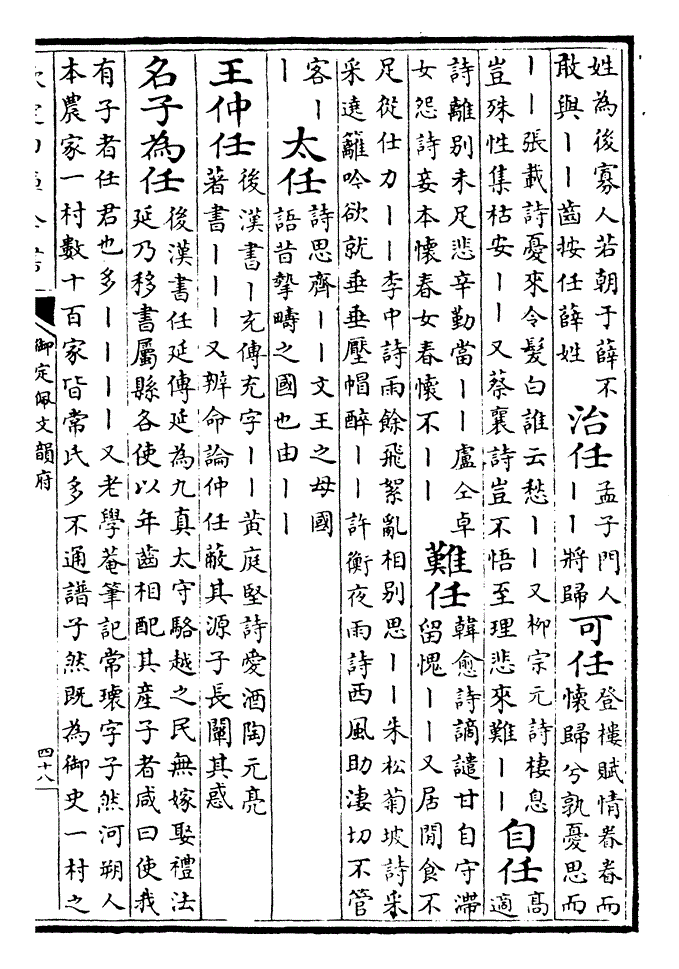 姓為後寡人若朝于薛不
敢與丨丨齒按任薛姓
治任
孟子門人
丨丨將歸
可任
登樓賦情眷眷而
懷歸兮孰憂思而
丨丨張載詩憂來令髮白誰云愁丨丨又柳宗元詩棲息
豈殊性集枯安丨丨又蔡襄詩豈不悟至理悲來難丨丨
自任
高
適
詩離別未足悲辛勤當丨丨盧仝卓
女怨詩妾本懷春女春懷不丨丨
難任
韓愈詩謫譴甘自守滯
留愧丨丨又居閒食不
足從仕力丨丨李中詩雨餘飛絮亂相別思丨丨朱松菊坡詩采
采遶籬吟欲就垂垂壓帽醉丨丨許衡夜雨詩西風助淒切不管
客丨
丨
太任
詩思齊丨丨文王之母國
語昔摯疇之國也由丨丨
王仲任
後漢書丨充傳充字丨丨黃庭堅詩愛酒陶元亮
著書丨丨丨又辨命論仲任蔽其源子長闡其惑
名子為任
後漢書任延傳延為九真太守駱越之民無嫁娶禮法
延乃移書屬縣各使以年齒相配其產子者咸曰使我
有子者任君也多丨丨丨丨又老學菴筆記常瓌字子然河朔人
本農家一村數十百家皆常氏多不通譜子然既為御史一村之
欽定四庫全書
御定佩文韻府
四十八